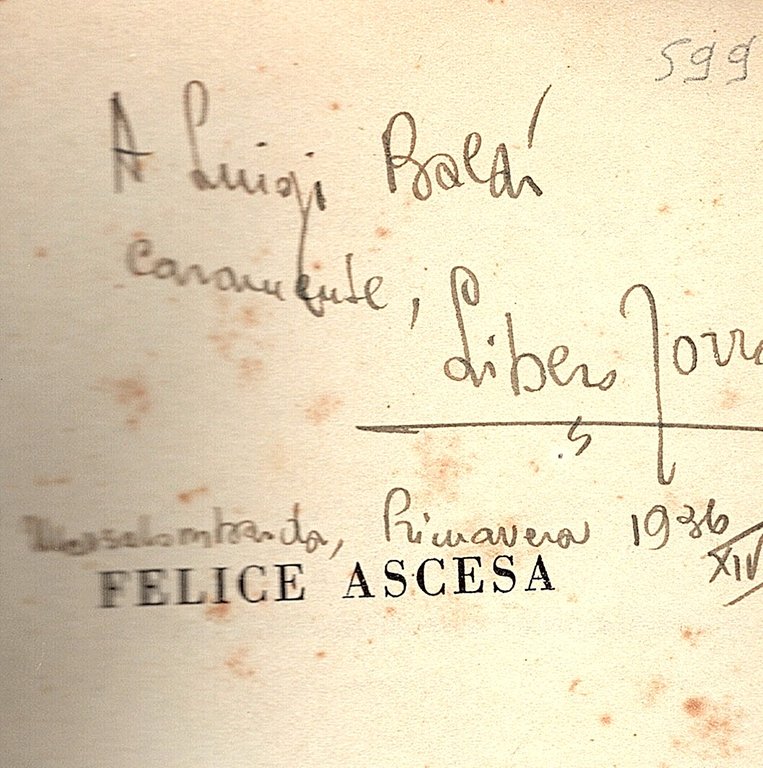 599
A Luigi Baldi
caramente,
Libero
Massalombarda, Primavera 1936
XIV
FELICE ASCESA